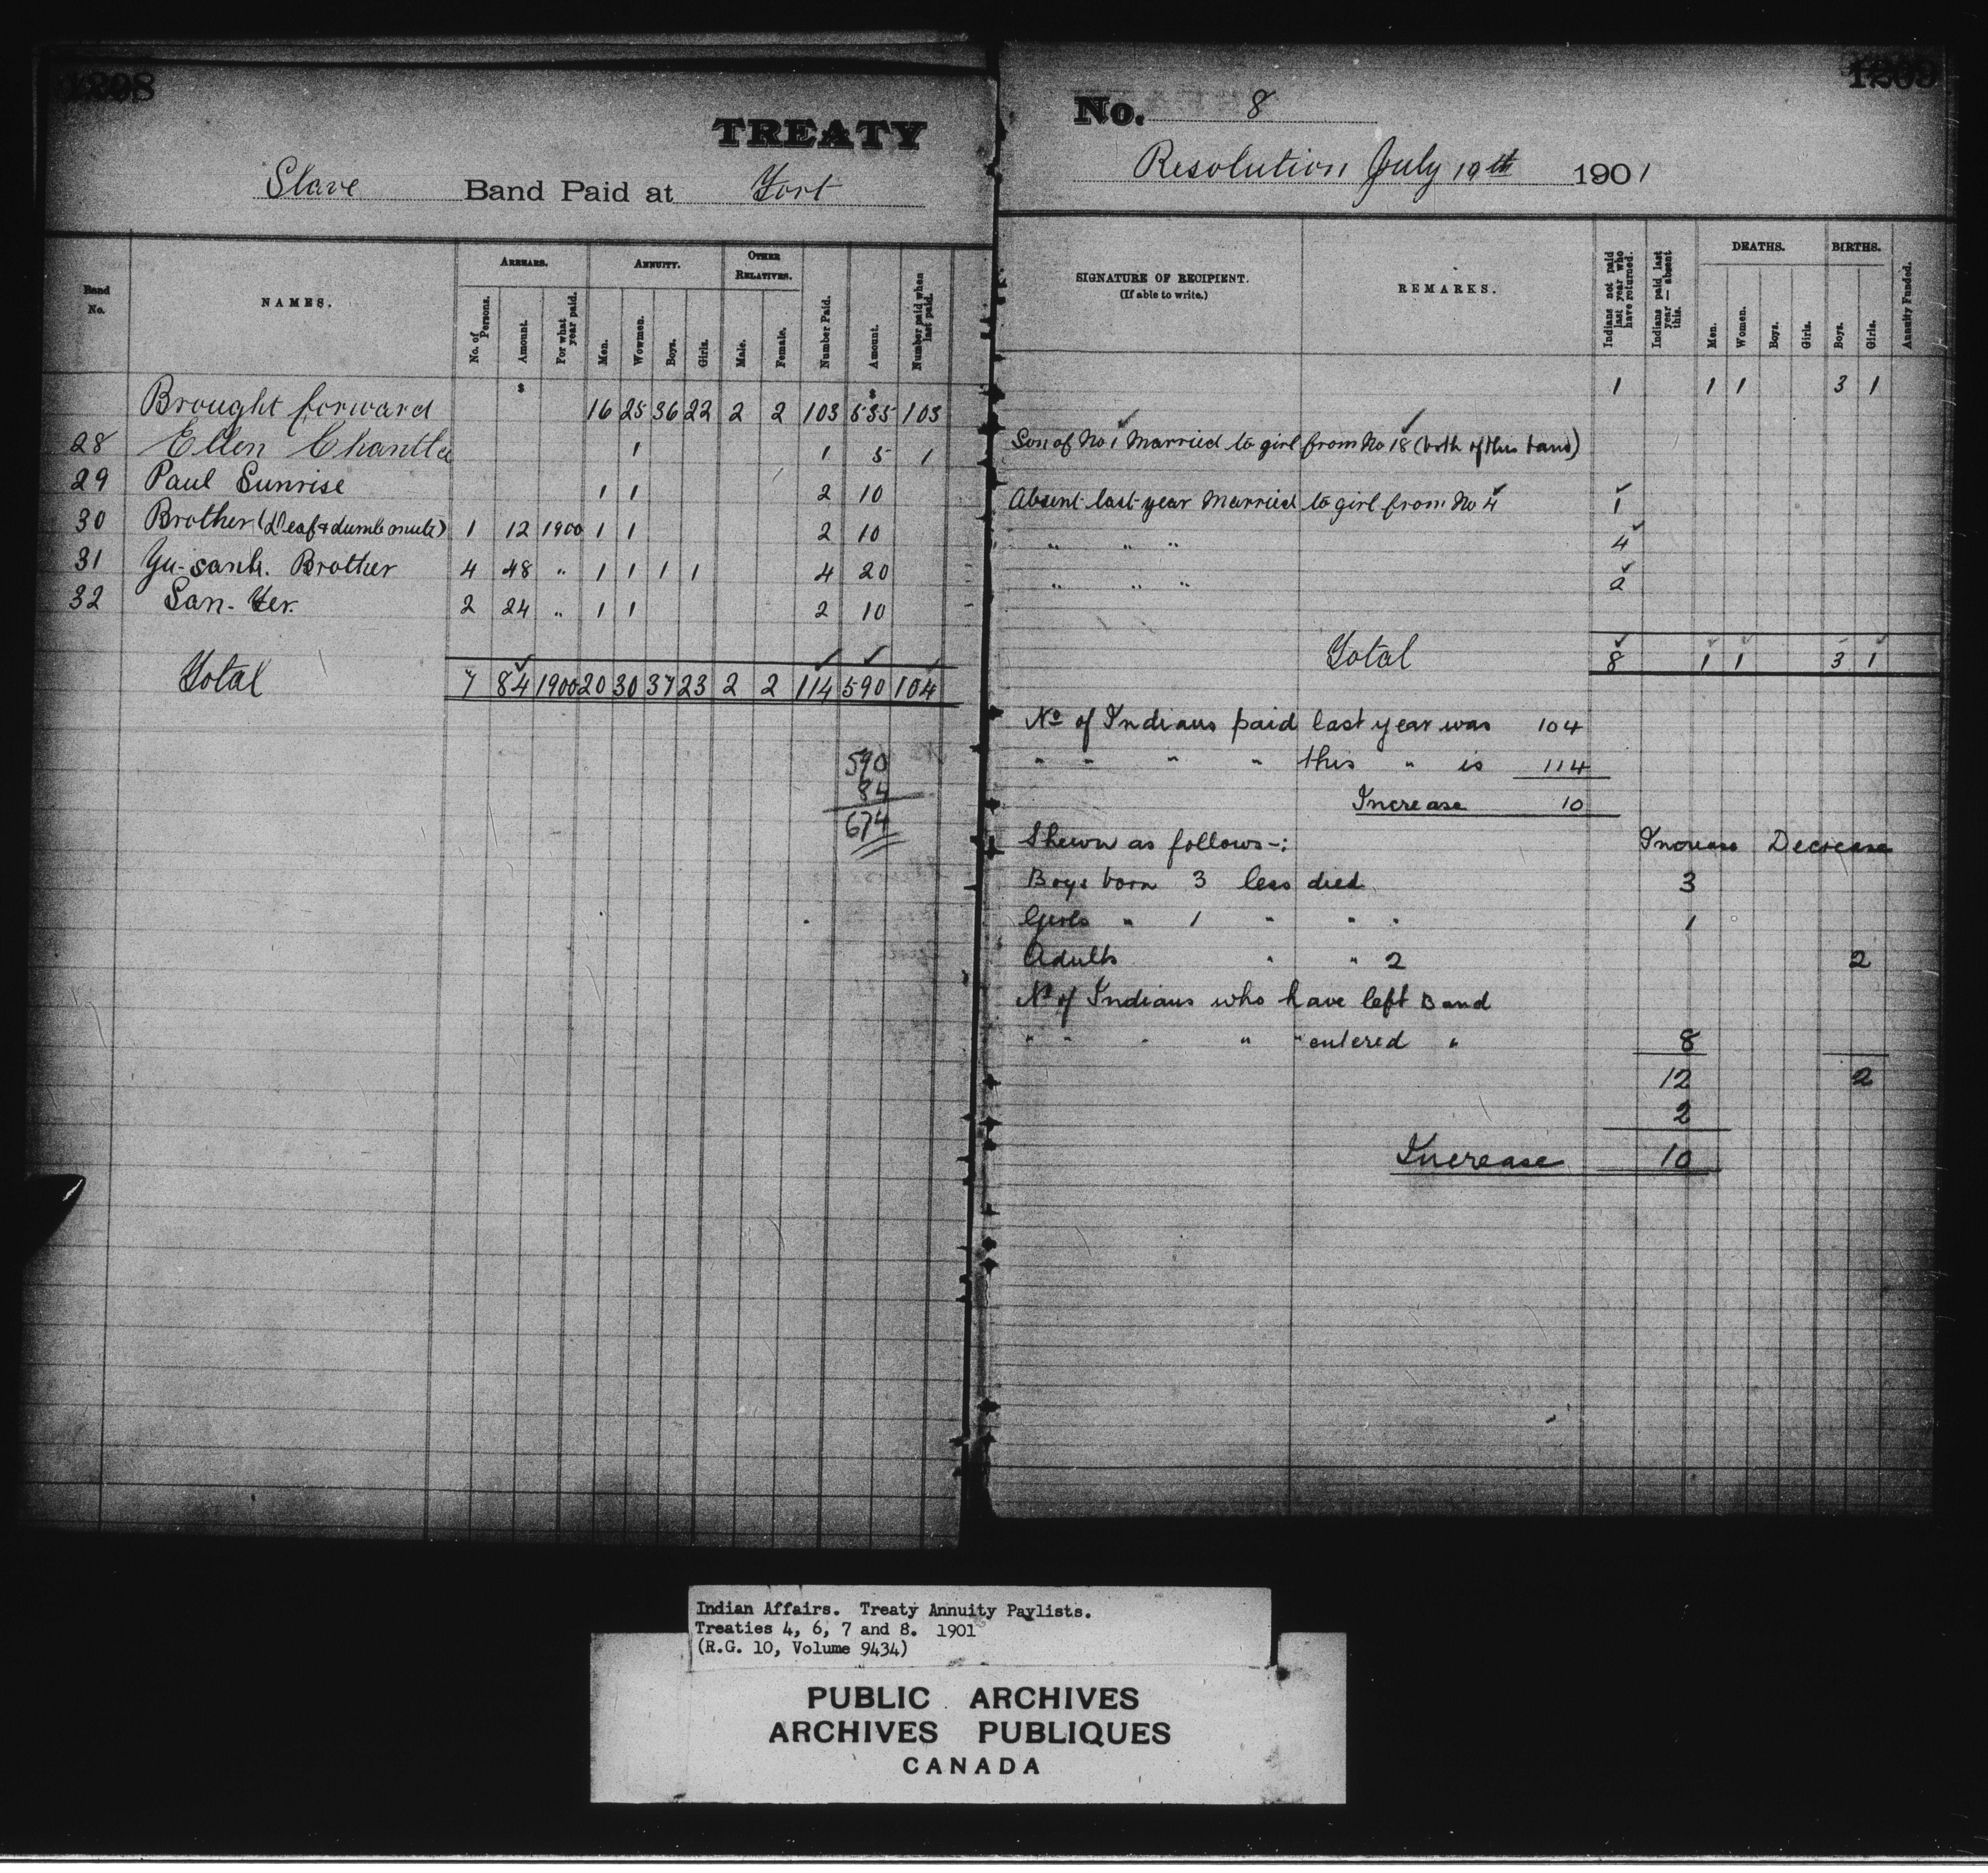 1208
TREATY
Slave Band Paid at Fort
Band No.
NAMES.
ARREARS.
No. of Persons.
Amount.
For what year paid.
ANNUITY.
Men.
Wowmen.
Boys.
Girls.
OTHER RELATIVES.
Male.
Female.
Number Paid.
Amount.
Number paid when last paid.
$ $
Brought forward 16 25 36 22 2 2 103 535 103
28 Ellen 1 1 5 1
29 Paul Sunrise 1 1 2 10
30 Brother (Deaf & dumb mute) 1 12 1900 1 1 2 10
31 Brother 4 48 " 1 1 1 1 4 20
32 2 24 " 1 1 2 10
Total 7 84 1900 20 30 37 23 2 2 114 590 104
590
84
674
1209
No. 8
Resolution July 19th 1901
SIGNATURE OF RECIPIENT.
(If able to write.)
REMARKS.
Indians not paid last year who have returned.
Indians paid last year — absent this.
DEATHS.
Men.
Women.
Boys.
Girls.
BIRTHS.
Boys.
Girls.
Annuity Funded.
1 1 1 3 1
Son of No 1 Married to girl from No 18 (both of this band)
Absent last year Married to girl from No 4 1
" " " 4
" " " 2
Total 8 1 1 3 1
No of Indians paid last year was 104
" " " " this " is 114
Increase 10
Shewn as follows-: Increase Decrease
Boys born 3 less died 3
Girls " 1 " " " 1
Adults " " 2 2
No of Indians who have left Band
" " " " " entered " 8
12 2
2
Increase 10
Indian Affairs. Treaty Annuity Paylists.
Treaties 4, 6, 7 and 8. 1901
(R.G. 10, Volume 9434)
PUBLIC ARCHIVES
ARCHIVES PUBLIQUES
CANADA